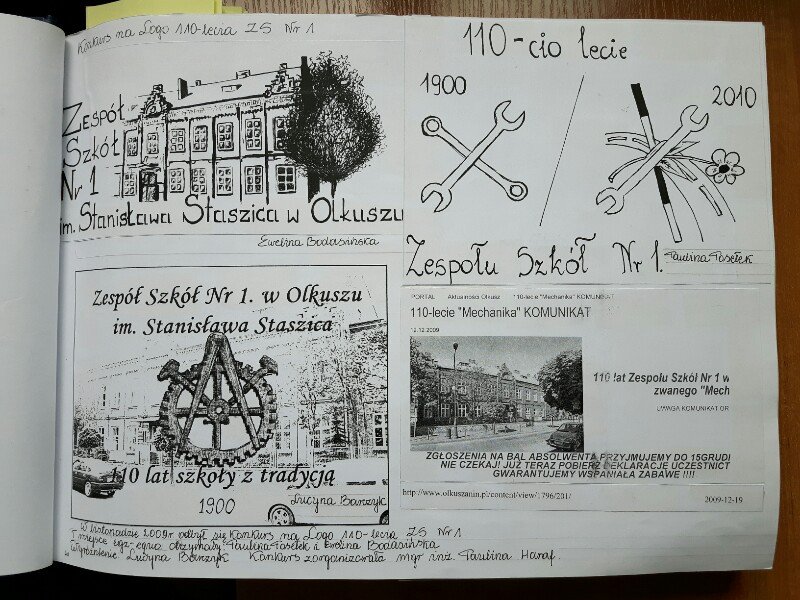 Konkurs na Logo 110-lecia ZS Nr 1
Zespół
Szkół
Nr 1
im. Stanisława Staszica w Olkuszu
Ewelina Bodasińska
110-cio lecie
1900
2010
Zespołu Szkół Nr 1.
Paulina Pasełek
Zespół Szkół Nr 1. w Olkuszu
im. Stanisława Staszica
110 lat szkoły z tradycją
1900
Lucyna Barczyk
PORTAL Aktualności Olkusz 110-lecie "Mechanika" KOMUNIKAT
110-lecie "Mechanika" KOMUNIKAT
12.12.2009
110 lat Zespołu Szkół Nr 1 w
zwanego "Mech
UWAGA KOMUNIKAT OR
ZGŁOSZENIA NA BAL ABSOLWENTA PRZYJMUJEMY DO 15GRUDI
NIE CZEKAJ! JUŻ TERAZ POBIERZ DEKLARACJE UCZESTNICT
GWARANTUJEMY WSPANIAŁA ZABAWE !!!!
http://www.olkuszanin.pl/content/view/1796/201/
2009-12-19
W listopadzie 2009r odbył się Konkurs na Logo 110-lecia ZS Nr 1
I miejsce egz-equo otrzymały: Paulina Pasełek i Ewelina Bodasińska
Wyróżnienie Lucyna Barczyk Konkurs zorganizowała mgr inż. Paulina Haraf.